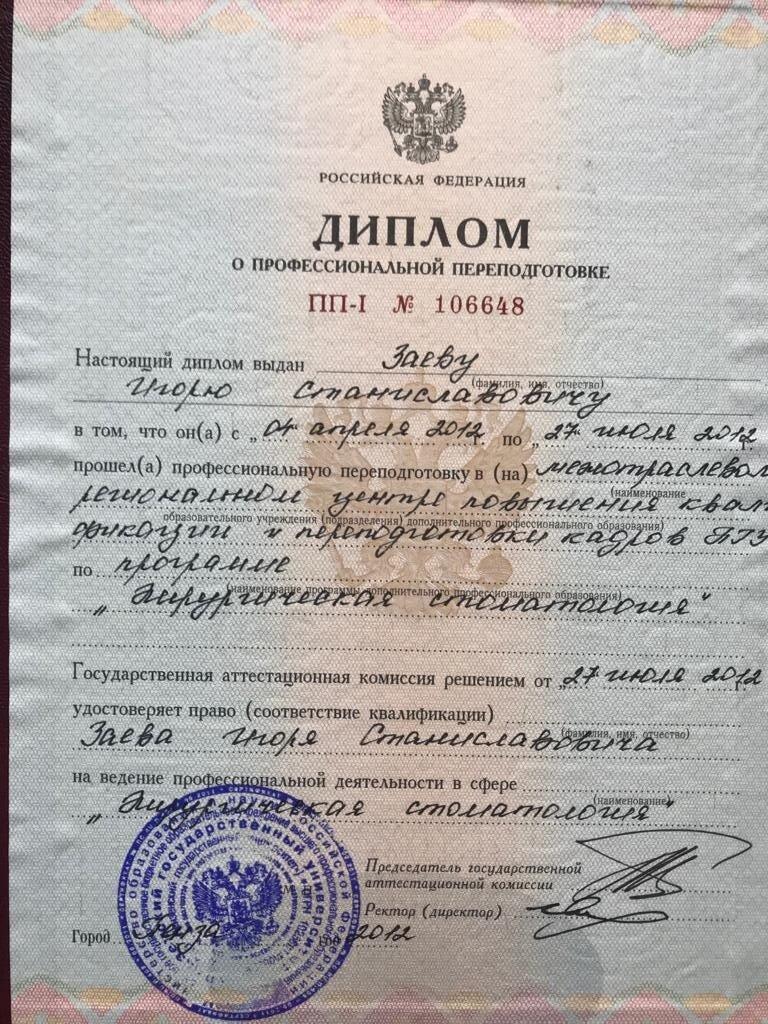 РОССИЙСКАЯ ФЕДЕРАЦИЯ
ДИПЛОМ
О ПРОФЕССИОНАЛЬНОЙ ПЕРЕПОДГОТОВКЕ
ПП-I № 106648
Настоящий диплом выдан Заеву
(фамилия, имя, отчество)
Игорю Станиславовичу
в том, что он(а) с „04 апреля 2012 г. по „27 июля 2012
прошел(а) профессиональную переподготовку в (на) межотраслевом
(наименование
региональном центре повышения квали
образовательного учреждения (подразделения) дополнительного профессионального образования)
фикации и переподготовки кадров ПГУ
по программе
(наименование программы дополнительного профессионального образования)
„Хирургическая стоматология"
Государственная аттестационная комиссия решением от „27 июля 2012
удостоверяет право (соответствие квалификации)
(фамилия, имя, отчество)
Заева Игоря Станиславовича
на ведение профессиональной деятельности в сфере
(наименование)
„Хирургическая стоматология"
Председатель государственной
аттестационной комиссии
Ректор (директор)
Город Пенза год 2012